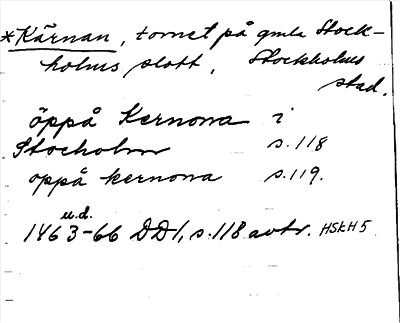 *Kärnan, tornet på gmla Stock-
holms slott, Stockholms
stad.
öppå Kernona i
Stocholm s. 118
oppå kernona s. 119.
u.d.
1463-66 DD1, s. 118 avtr. HSkH5